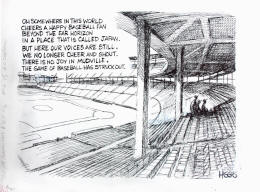 OH SOMEWHERE IN THIS WORLD
CHEERS A HAPPY BASEBALL FAN
BEYOND THE FAR HORIZON
IN A PLACE THAT IS CALLED JAPAN.
BUT HERE OUR VOICES ARE STILL.
WE NO LONGER CHEER AND SHOUT.
THERE IS NO JOY IN MUDVILLE.
THE GAME OF BASEBALL HAS STRUCK OUT.